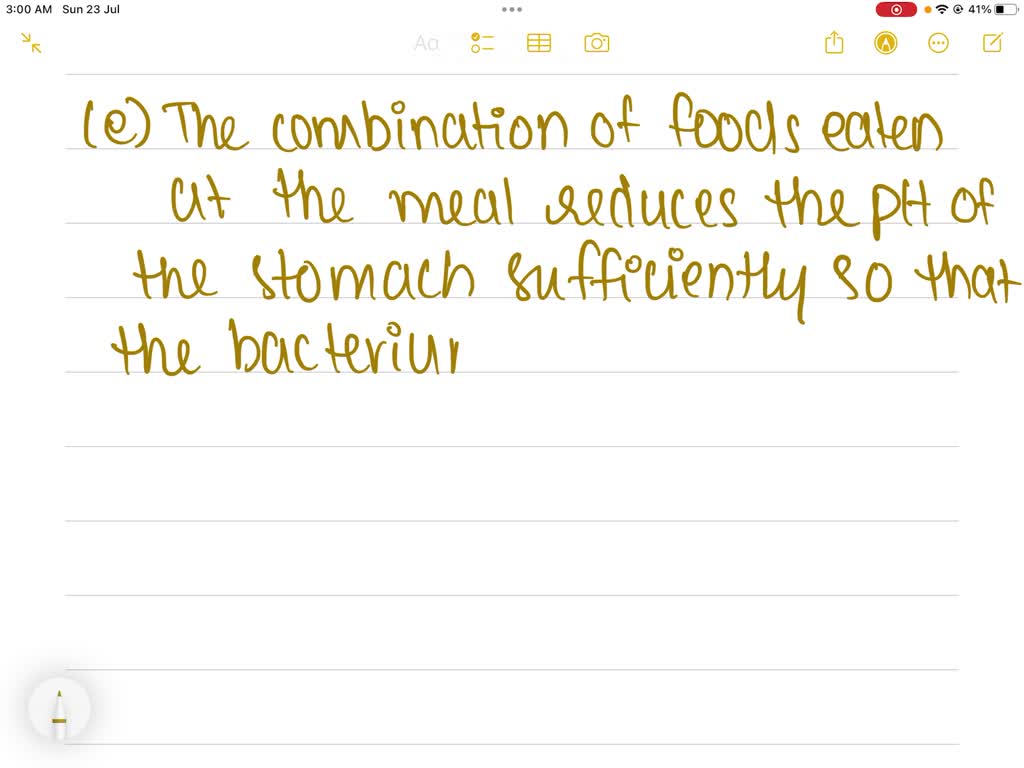 3:00 AM Sun 23 Jul
41%
Aa
(e) The combination of foods eaten
at the meal reduces the pH of
the stomach sufficiently so that
the bacteriur